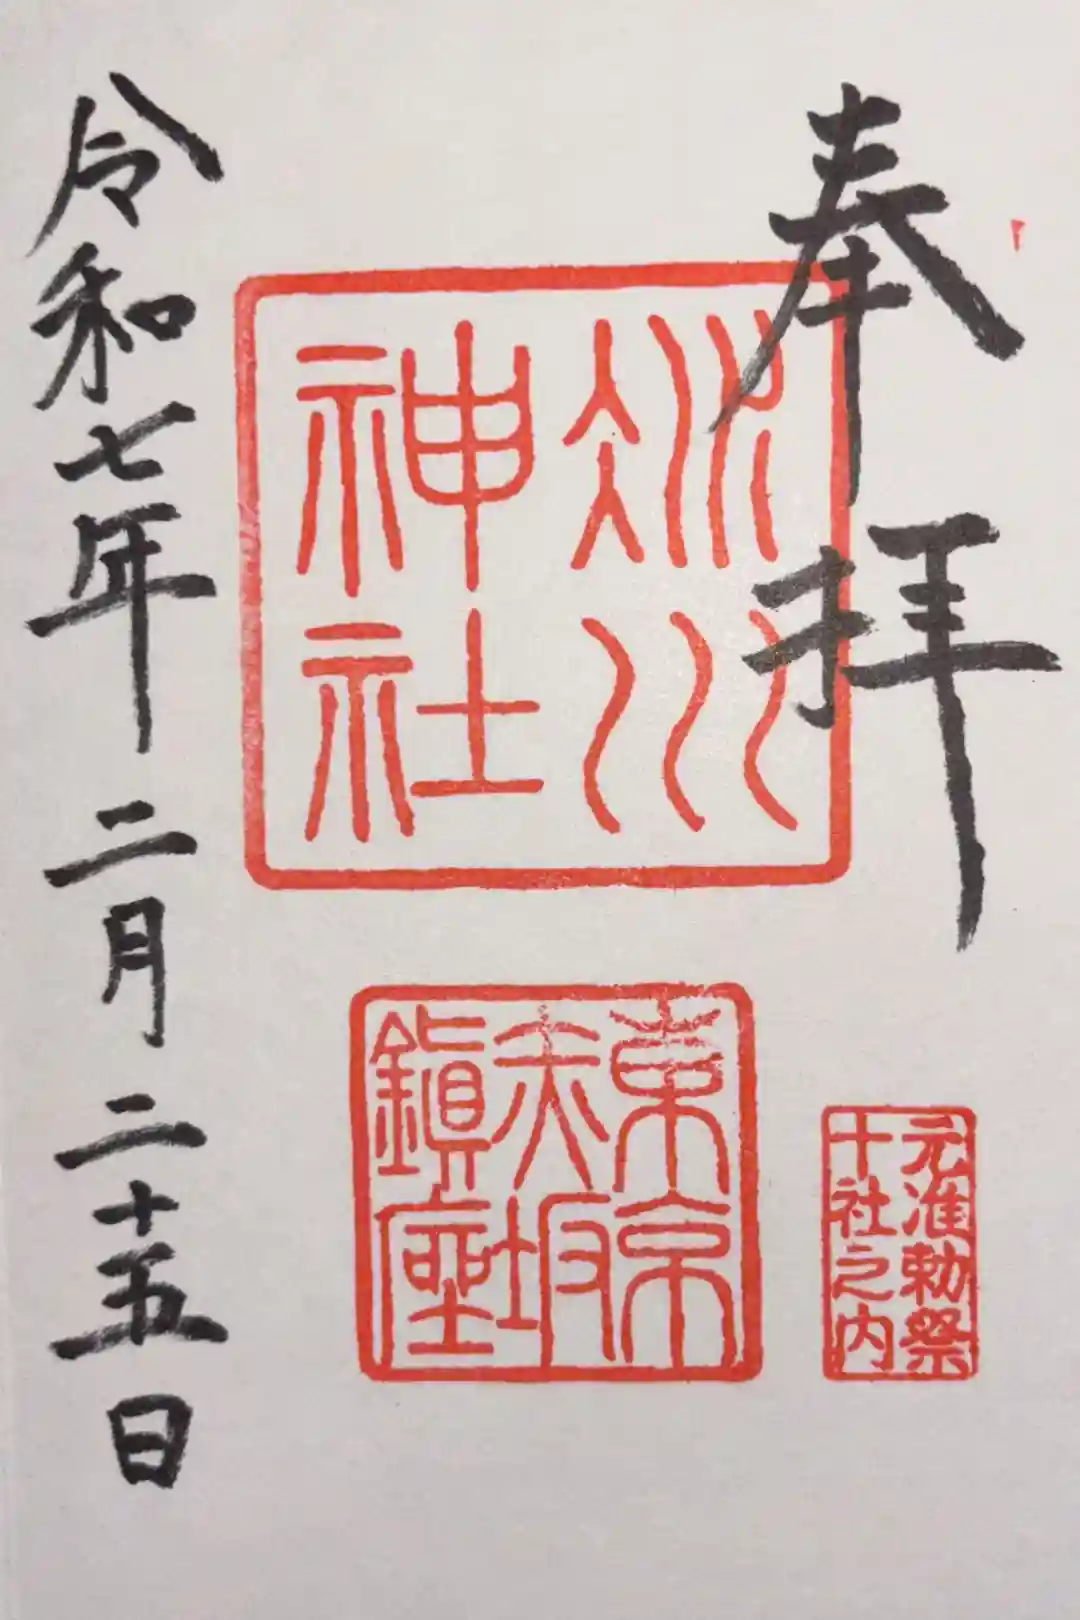 奉拝
氷川
神社
東京
赤坂
鎮座
元准勅祭
十社之内
令和七年 二月 二十五日